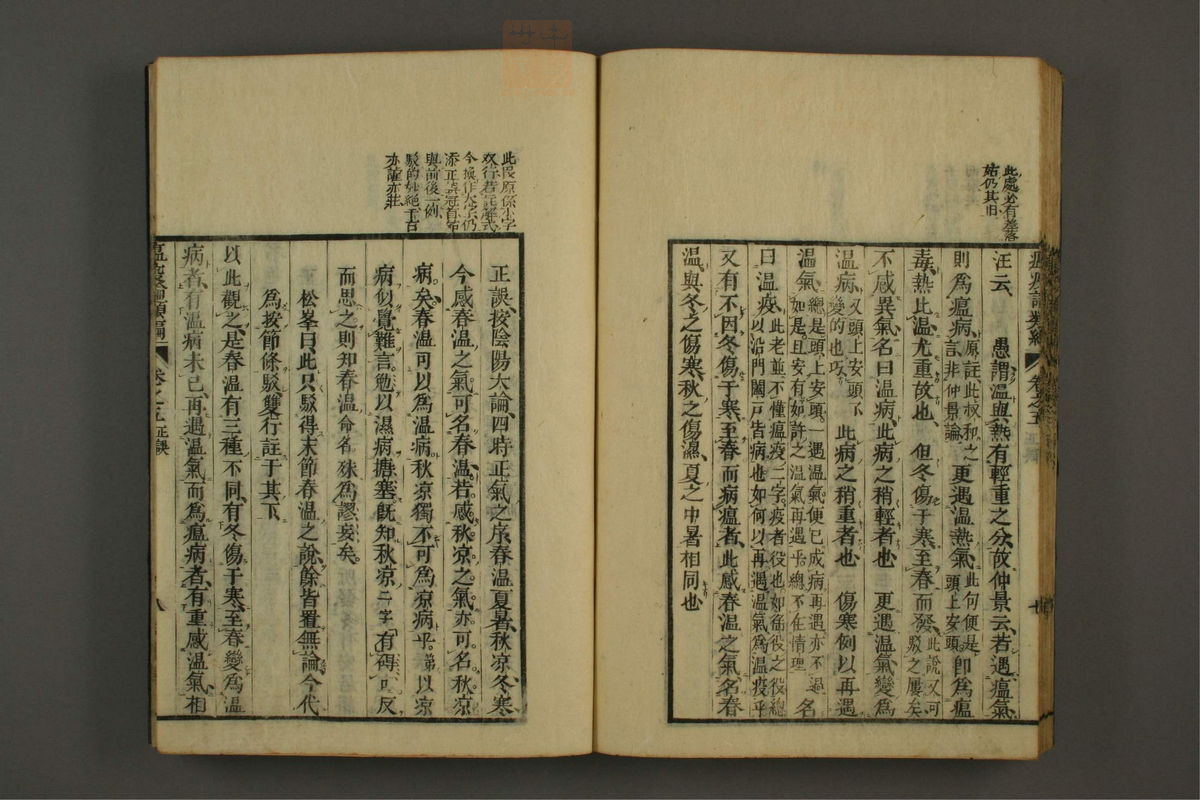 此處必有差落
姑仍其旧
汪云愚謂溫與熱有輕重之分故仲景云若遇瘟氣
則爲瘟病原註此叔和之言非仲景論更遇溫熱氣此句便是頭上安頭卽爲瘟
毒熱比溫尤重故也但冬傷于寒至春而發此說又可駁之屢矣
不感異氣名曰溫病此病之稍輕者也更遇溫氣變爲
溫病又頭上安頭變的也巧此病之稍重者也傷寒例以再遇
溫氣總是頭上安頭一遇溫氣便已成病再遇亦不過如是且安有如許之溫氣再遇乎總不在情理名
曰溫疫此老並不懂瘟疫二字疫者役也如徭役之役總以沿門闔戶皆病也如何以再遇溫氣爲溫疫乎
又有不因冬傷于寒至春而病瘟者此感春溫之氣名春
溫與冬之傷寒秋之傷濕夏之中暑相同也
卷之五
正誤
此段原係小字
双行若註解式
今
正誤
與前後一例
駁的妙絕千百
亦諧亦莊
正誤按陰陽大論四時正氣之序春溫夏暑秋凉冬寒
今感春溫之氣可名春溫若感秋凉之氣亦可名秋凉
病矣春溫可以爲溫病秋凉獨不可爲凉病乎弟以凉
病似覺難言勉以濕病搪塞旣知秋凉二字有碍何反
而思之則知春溫命名殊爲謬妄矣
松峯曰此只駁得末節春溫之說餘皆置無論今代
爲按節條駁雙行註于其下
以此觀之是春溫有三種不同有冬傷于寒至春變爲溫
病者有溫病未已再遇溫氣而爲瘟病者有重感溫氣相
瘟疫論類編
卷之五
正誤
八